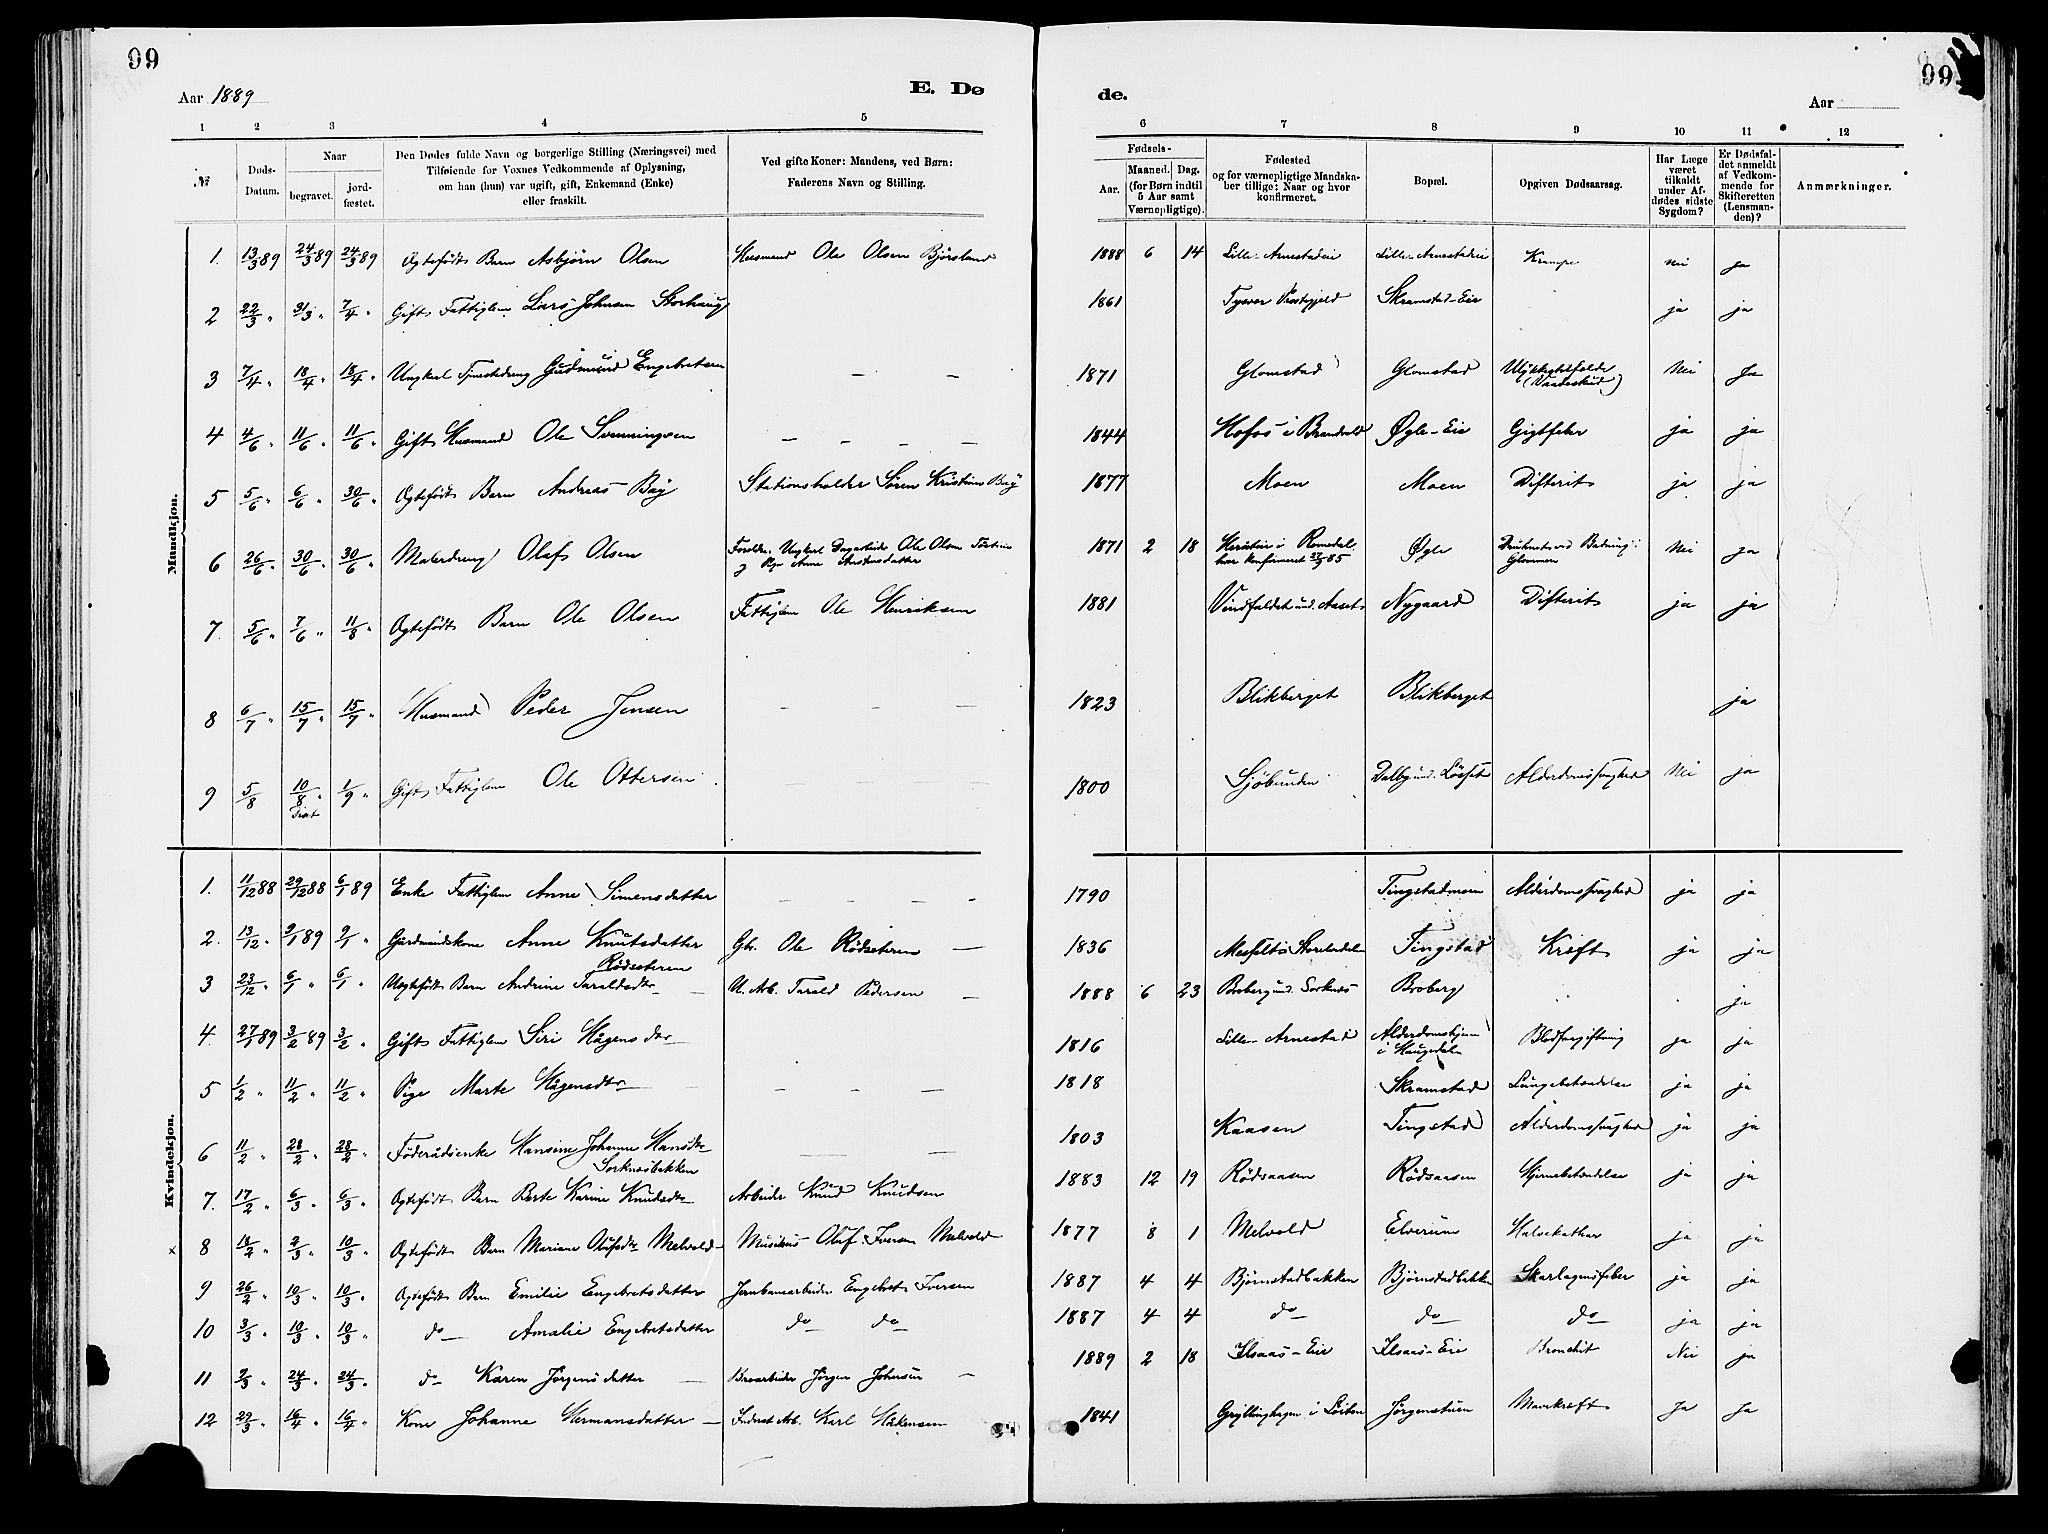 99
99
Aar 1889
E. Dø
de.
Aar
1 2 3 4 5 6 7 8 9 10 11 12
№
Døds-Datum.
Naar
begravet.
jord-fæstet.
Den Dødes fulde Navn og borgerlige Stilling (Næringsvei) med
Tilføiende for Voxnes Vedkommende af Oplysning,
om han (hun) var ugift, gift, Enkemand (Enke)
eller fraskilt.
Ved gifte Koner: Mandens, ved Børn:
Faderens Navn og Stilling.
Fødsels-
Aar.
Maaned. Dag.
(for Børn indtil
5 Aar samt
Værnepligtige).
Fødested
og for værnepligtige Mandska-
ber tillige: Naar og hvor
konfirmeret.
Bopæl.
Opgiven Dødsaarsag.
Har Læge
været
tilkaldt
under Af-
dødes sidste
Sygdom?
Er Dødsfal-
det anmeldt
af Vedkom-
mende for
Skifteretten
(Lensman-
den)?
Anmærkninger.
Mandkjøn.
1. 13/3 89 24/3 89 24/3 89 Ægtefødt Barn Asbjørn Olsen Husmand Ole Olsen Bjørsland 1888 6 14 Lille-Arnestadeie Lille-Arnestadeie Krampe nei ja
2 22/3 " 31/3 " 7/4 " Gift Fattiglem Lars Johnsen Storhaug 1861 Tysvær Præstgjeld Skramstad-Eie ja ja
3 7/4 " 18/4 " 18/4 " Ungkarl Tjenestedreng Gudmund Engebretsen — — 1871 Glomstad Glomstad Ulykkestilfælde (Vaadeskud) Nei Ja
4 4/6 " 11/6 " 11/6 " Gift Husmand Ole Svenningsen — — — — 1844 Hofos i Brandval Øgle-Eie Gigtfeber ja ja
5 5/6 " 6/6 " 30/6 " Ægtefødt Barn Andreas Bay Stationsholder Søren Kristian Bay 1877 Moen Moen Difterit ja ja
6 26/6 " 30/6 " 30/6 " Malerdreng Olaf Olsen Foreldre: Ungkarl Dagarbeider Ole Olsen
og Pige Anne 1871 2 18 i Romedal
konfirmeret 27/9 85 Øgle Druknet ved Badning i
Glommen Nei ja
7. 5/6 " 7/6 " 11/8 " Ægtefødt Barn Ole Olsen Fattiglem Ole Henriksen 1881 Vindfaldet und. Aaset Nygaard Difterit ja ja
8 6/7 " 15/7 " 15/7 " Husmand Peder Jensen — — — 1823 Blikberget Blikberget ja
9 5/8 10/8 " 1/9 " Gift Fattiglem Ole Ottersen — — — 1800 Sjöbunden Dalby und. Løsset Alderdomssvaghed Nei ja
Kvindekjøn.
1. 11/12 88 29/12 88 6/1 89 Enke Fattiglem Anne Simensdatter — — — — 1790 Tingstadmoen Alderdomssvaghed ja ja
2. 13/12 " 2/1 89 2/1 " Gårdmandskone Anne Knutsdatter
Rödseteren Gbr. Ole Rödseteren — 1836 Messelt i Storelvdalen Tingstad Kræft ja ja
3 23/12 " 6/1 " 6/1 " Uægtefødt Barn Andrine Taraldsdtr — U. Arb. Tarald Pedersen — 1888 6 23 Broberg und. Sorknæs Broberg " " ja
4. 27/1 89 3/2 89 3/2 " Gift Fattiglem Siri Hågensdtr 1816 Lille-Arnestad Alderdomshjem
i Haugedalen Blodforgiftning ja ja
5 1/2 " 11/2 " 11/2 " Pige Marte Hågensdtr — — — 1818 Skramstad Lungebetændelse ja ja
6 11/2 " 28/2 " 28/2 " Föderådsenke Hansine Johanne Hansdtr
Sorknæsbakken — — 1803 Kaasen Tingstad Alderdomssvaghed ja ja
7. 17/2 " 6/3 " 6/3 " Ægtefødt Barn Berte Karine Knudsdtr Arbeider Knud Knudsen 1883 12 19 Rödsaasen Rödsaasen Hjernebetændelse ja ja
x 8 18/2 " 2/3 " 10/3 " Ægtefødt Barn Mariane Olufsdtr Melvold Musikus Oluf Iversen Melvold 1877 8 1 Melvold Elverum Halsekatar ja ja
9 26/2 " 10/3 " 10/3 " Ægtefødt Barn Emilie Engebretsdatter Jernbanearbeider Engebret Iversen 1887 4 4 Bjørnstadbakken Bjørnstadbakken Skarlagensfeber ja ja
10 3/3 " 10/3 " 10/3 " do Amalie Engebretsdatter do do 1887 4 4 do do do ja ja
11 9/3 " 24/3 " 24/3 " do Karen Jørgensdatter — Jørgen Johansen — 1889 2 18 Ilsaas-Eie Ilsaas-Eie Bronchit Nei ja
12 29/3 " 16/4 " 16/4 " Kone Johanne Hermansdatter — Inderst Arb. Karl Håkensen 1841 Gryllinghagen i Löiten Jørgenstuen Mavekræft Ja Ja